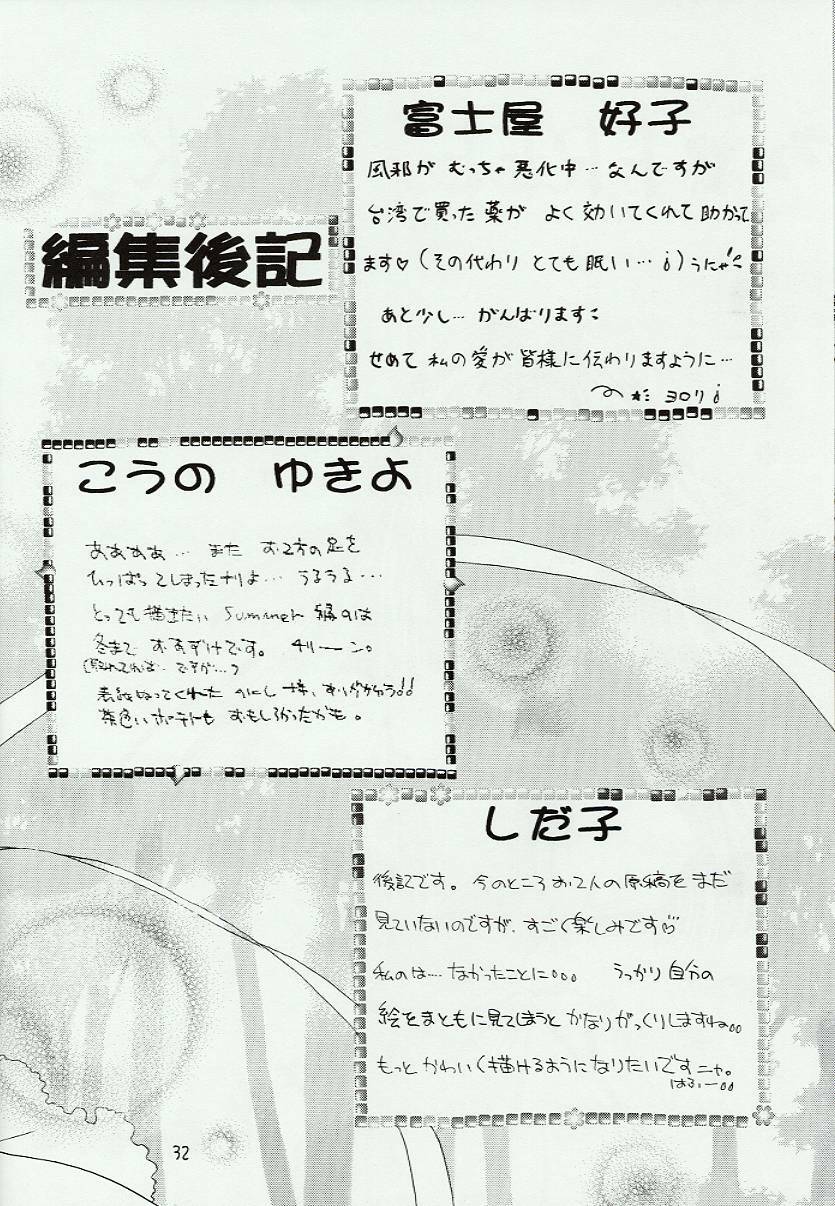 編集後記
富士屋 好子
風邪が むっちゃ悪化中…なんですが
台湾で買った薬が よく効いてくれて助かって
ます♡(その代わり とても眠い…)うにゃ
あと少し… がんばります
せめて 私の愛が皆様に伝わりますように…
こうの ゆきよ
ああああ… また お2方の足を
ひっぱってしまったナリよ… うるうる…
とっても描きたい Summer 編のは
冬まで おあずけです。 チリーン。
ですが…)
表紙 ってくれた
茶色いポチも おもしろかったかも。
しだ子
後記です。今のところお2人の原稿をまだ
見ていないのですが、すごく楽しみです♡
私のは…なかったことに。。。 うっかり自分の
絵をまともに見てしまうと かなりがっくりしますね。。
もっと かわいく描けるようになりたいですニャ。
はふぅー。。
32